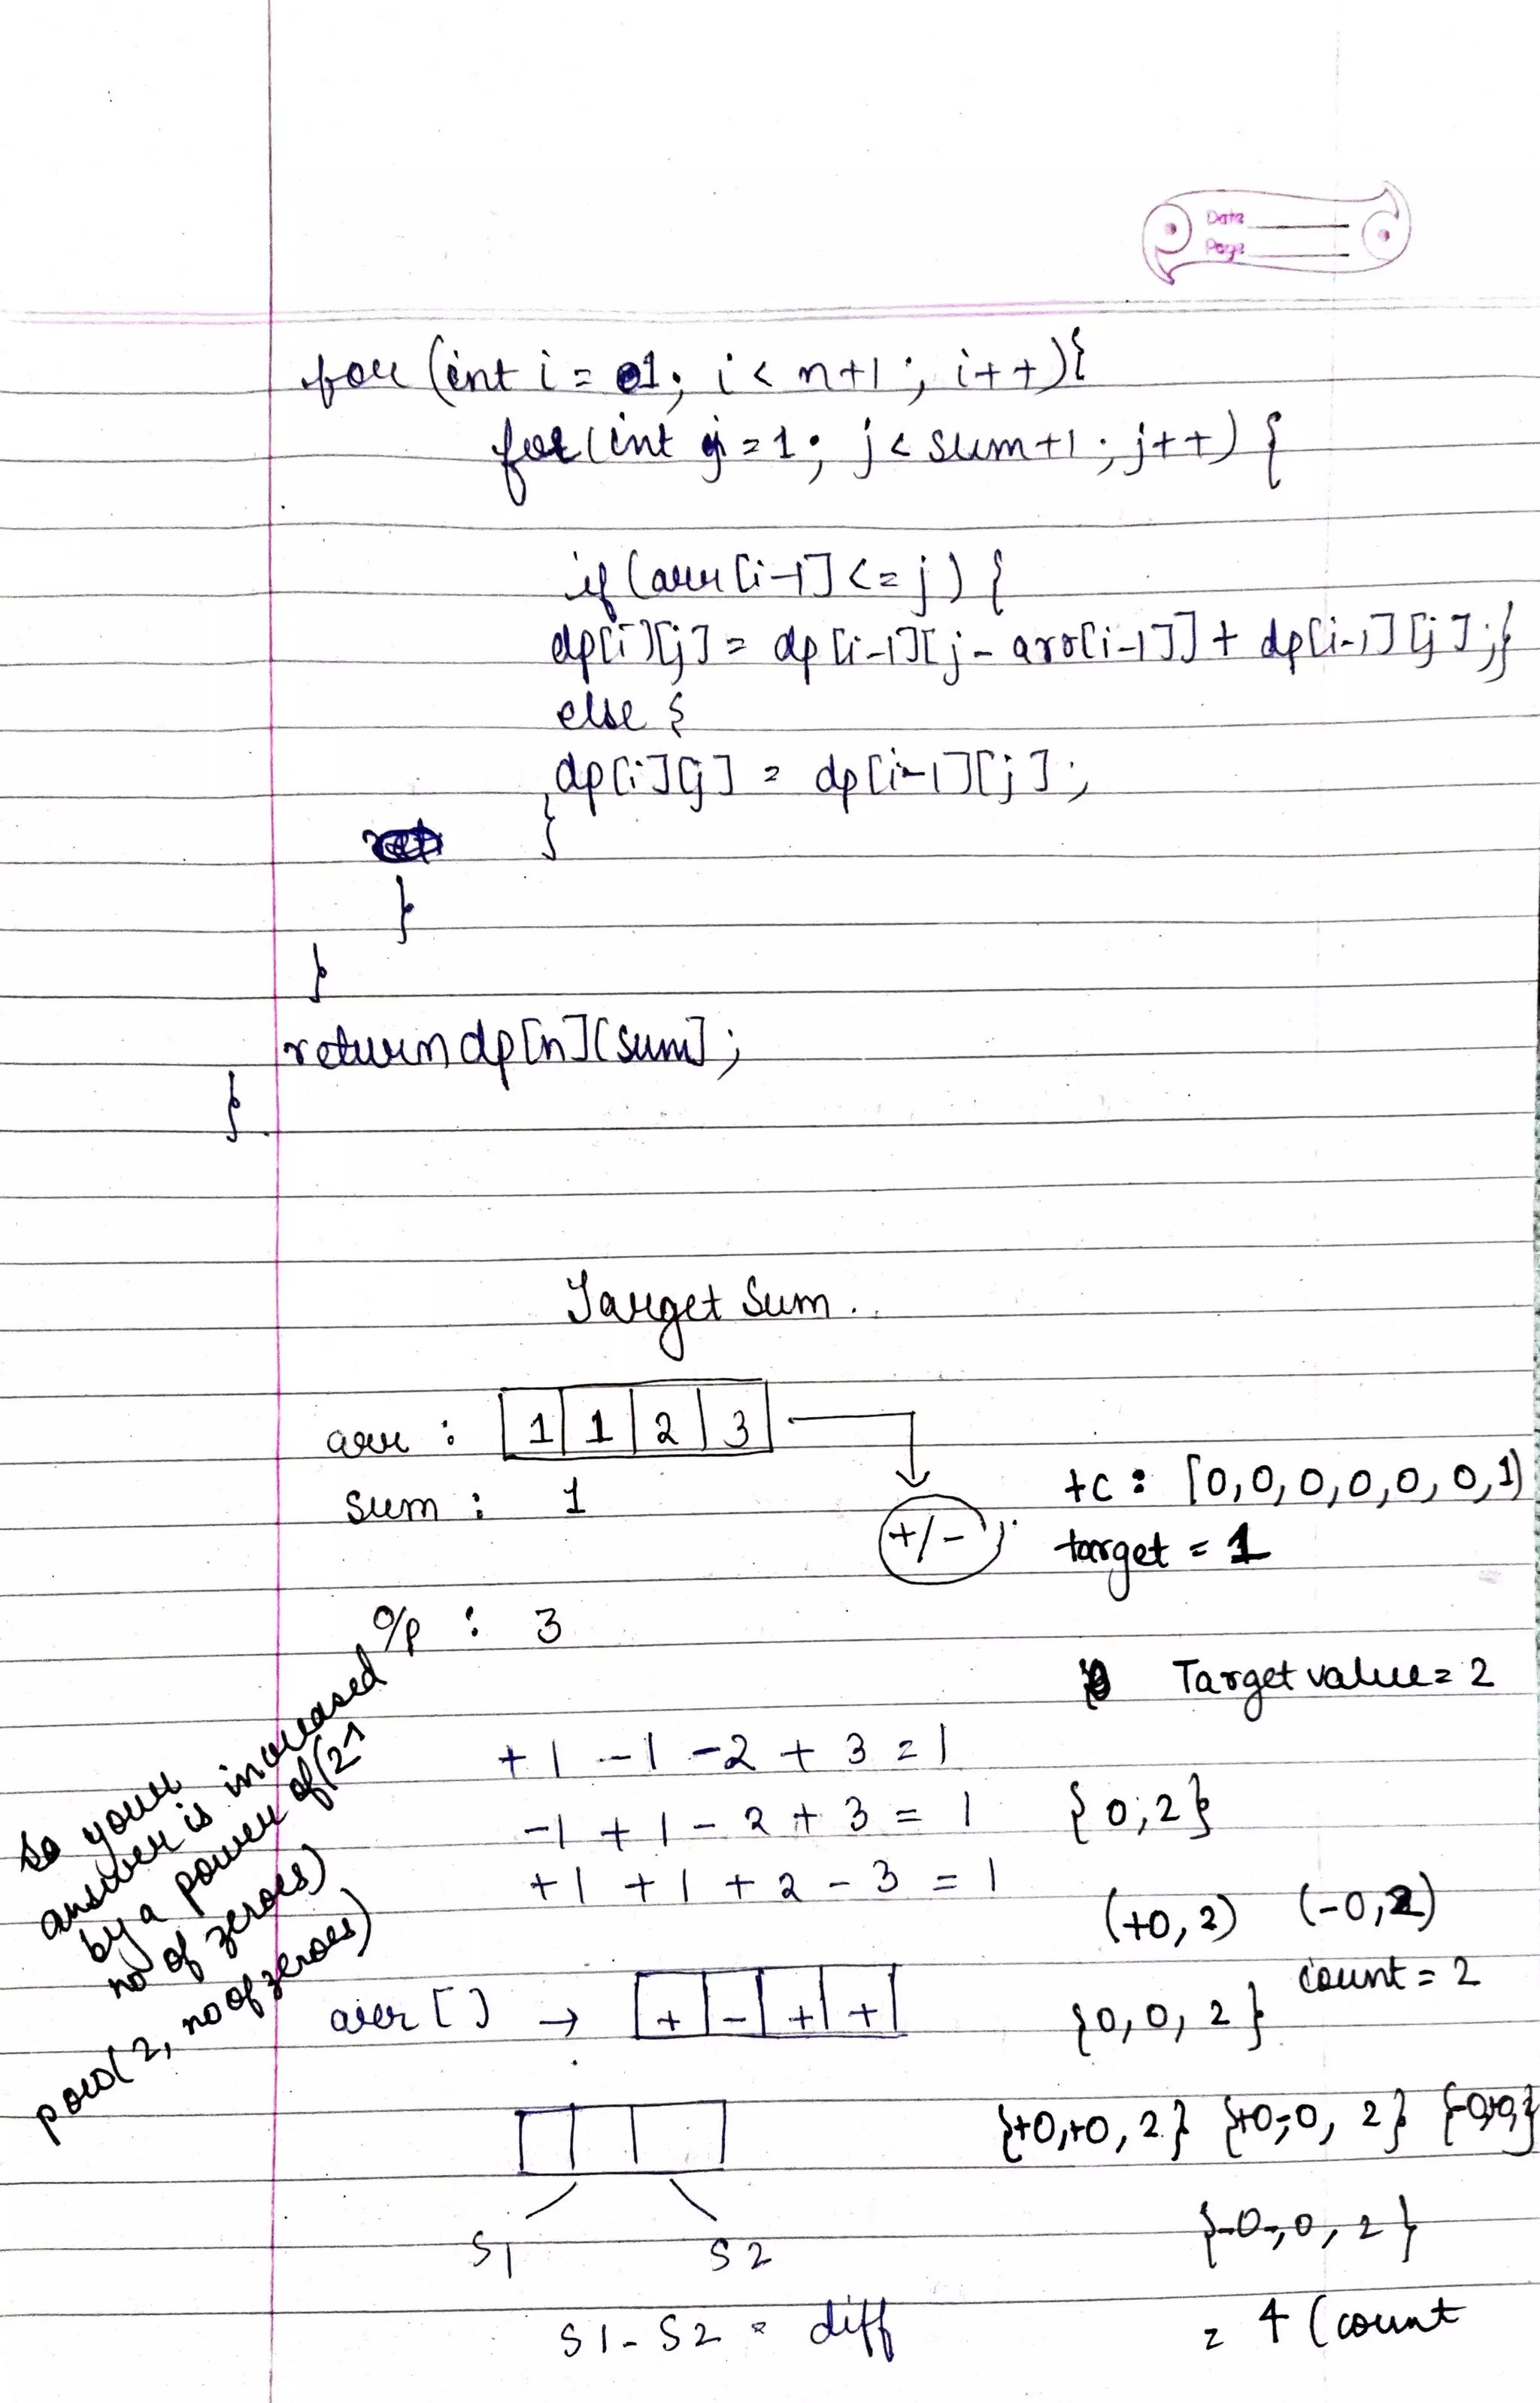 Date
Page
for (int i = 1; i < n+1; i++){
for(int j=1; j< sum+1; j++) {
if (arr[i-1] <= j) {
dp[i][j] = dp[i-1][j - arr[i-1]] + dp[i-1][j];}
else {
dp[i][j] = dp[i-1][j];
}
}
}
return dp[n][sum];
}
Target Sum..
arr : 1 1 2 3
sum : 1
+/-
tc : [0,0,0,0,0,0,1)
target = 1
o/p : 3
Target value = 2
+1 -1 -2 + 3 = 1
-1 + 1 - 2 + 3 = 1
+1 + 1 + 2 - 3 = 1
{0,2}
(+0, 2) (-0,2)
count = 2
so your
answer is increased
by a power of (2^
no of zeroes)
pow(2, no of zeroes)
arr [] → + - + +
{0, 0, 2}
{+0,+0, 2} {+0,-0, 2} {-0,+0,}
{-0-,0, 2}
S1 S2
S1 - S2 = diff
= 4 (count